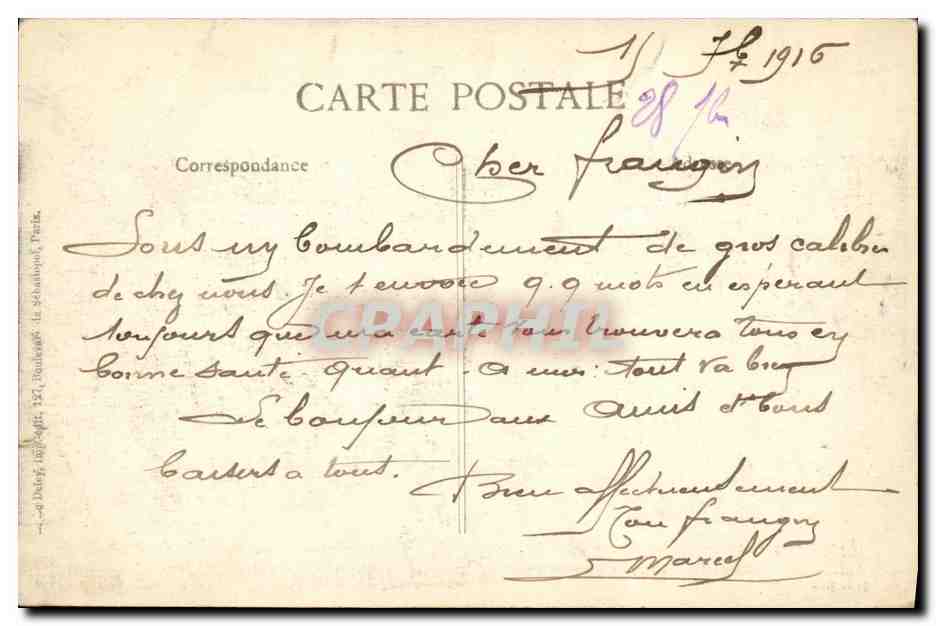 7bre 1916
CARTE POSTALE
28
Correspondance
Cher frangin
Sous un bombardement de gros calibre
de chez nous. Je t'envoie q.q mots en espérant
toujours que ma carte vous trouvera tous en
bonne santé. Quant à moi: tout va bien
Le bonjour aux amis et bons
baisers a tous.
Bien affectueusement
Ton frangin
Marcel
CPAPHIL
127, Boulevard de Sébastopol, Paris.